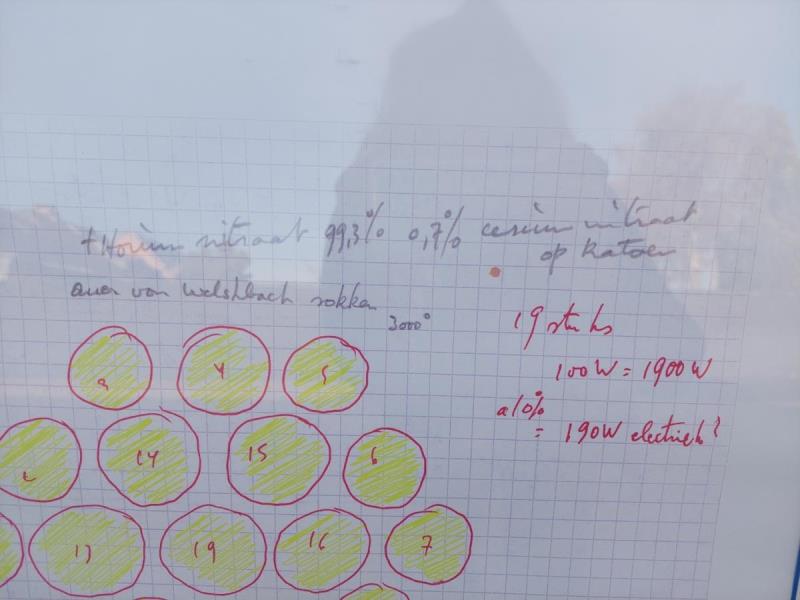 thorium nitraat 99,3% 0,7% cerium nitraat
op katoen
auer von welshbach sokken
3000°
19 stuks
100W = 1900W
a 10%
= 190W electrisch?
3 4 5
14 15 6
13 19 16 7